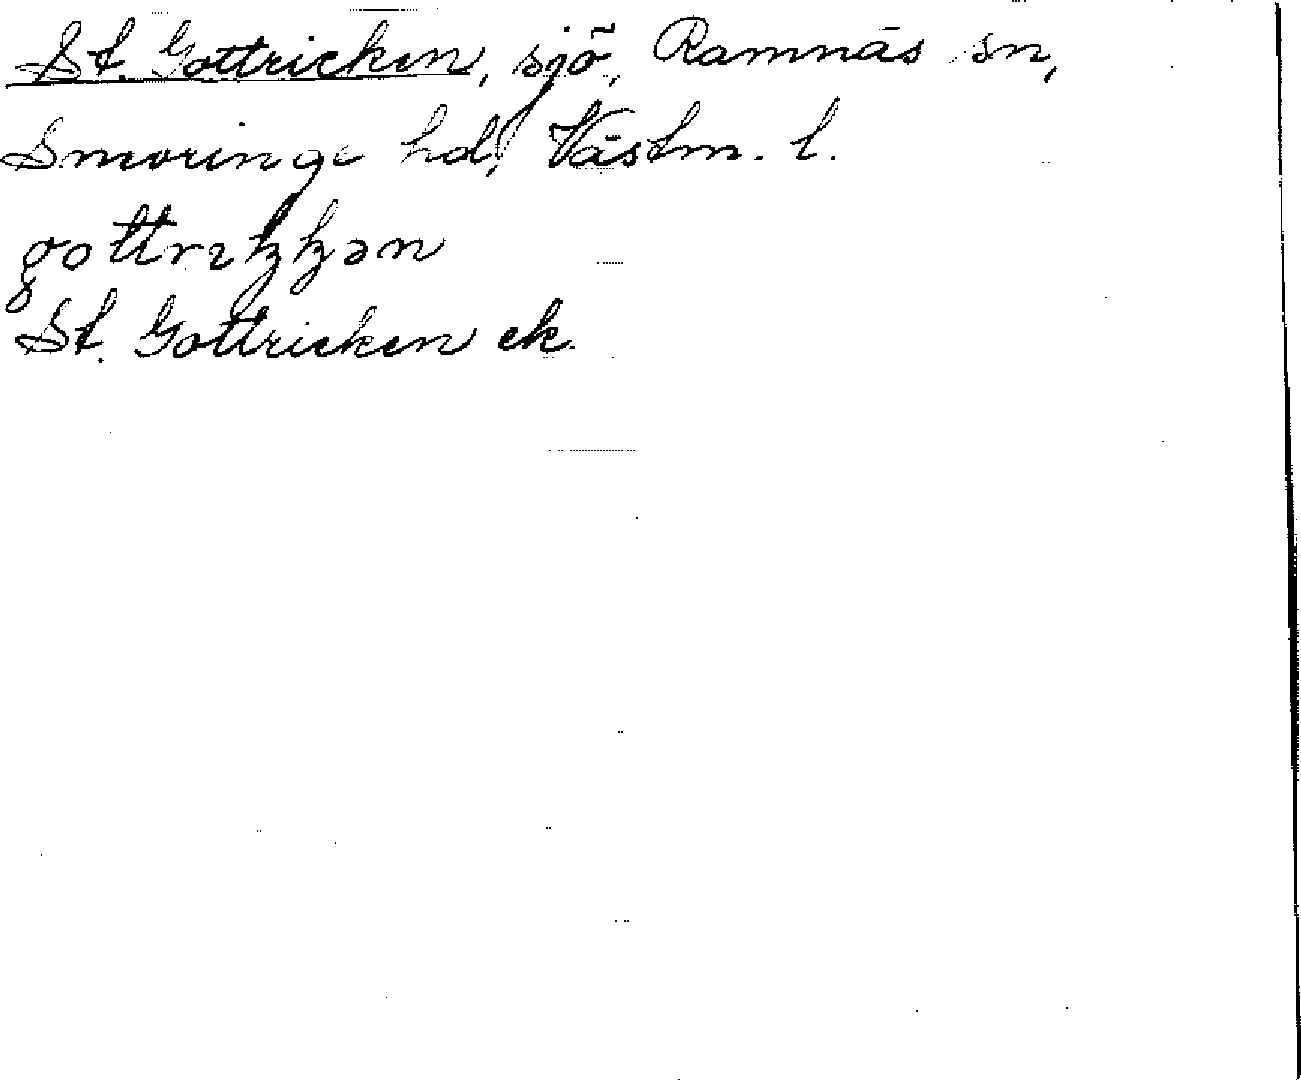 St. Gottricken, sjö, Ramnäs sn,
Snevringe hd, Västm. l.
gottrıkkən
St. Gottricken ek.